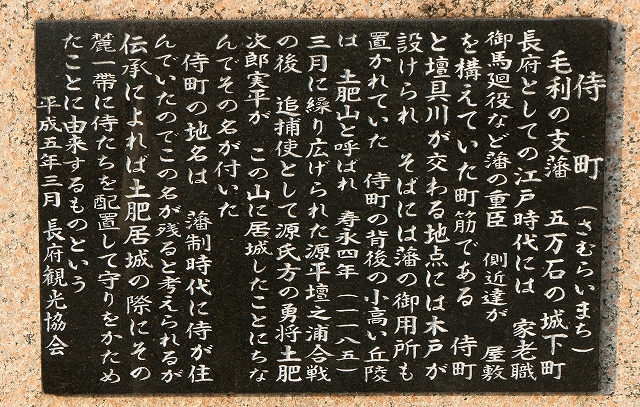 侍 町 (さむらいまち)
毛利の支藩 五万石の城下町
長府としての江戸時代には 家老職
御馬廻役など藩の重臣 側近達が 屋敷
を構えていた町筋である 侍町
と壇具川が交わる地点には木戸が
設けられ そばには藩の御用所も
置かれていた 侍町の背後の小高い丘陵
は 土肥山と呼ばれ 寿永四年 (一一八五)
三月に繰り広げられた源平壇之浦合戦
の後 追捕使として源氏方の勇将土肥
次郎実平が この山に居城したことにちな
んでその名が付いた
侍町の地名は 藩制時代に侍が住
んでいたのでこの名が残ると考えられるが
伝承によれば土肥居城の際にその
麓一帯に侍たちを配置して守りをかため
たことに由来するものという
平成五年三月 長府観光協会